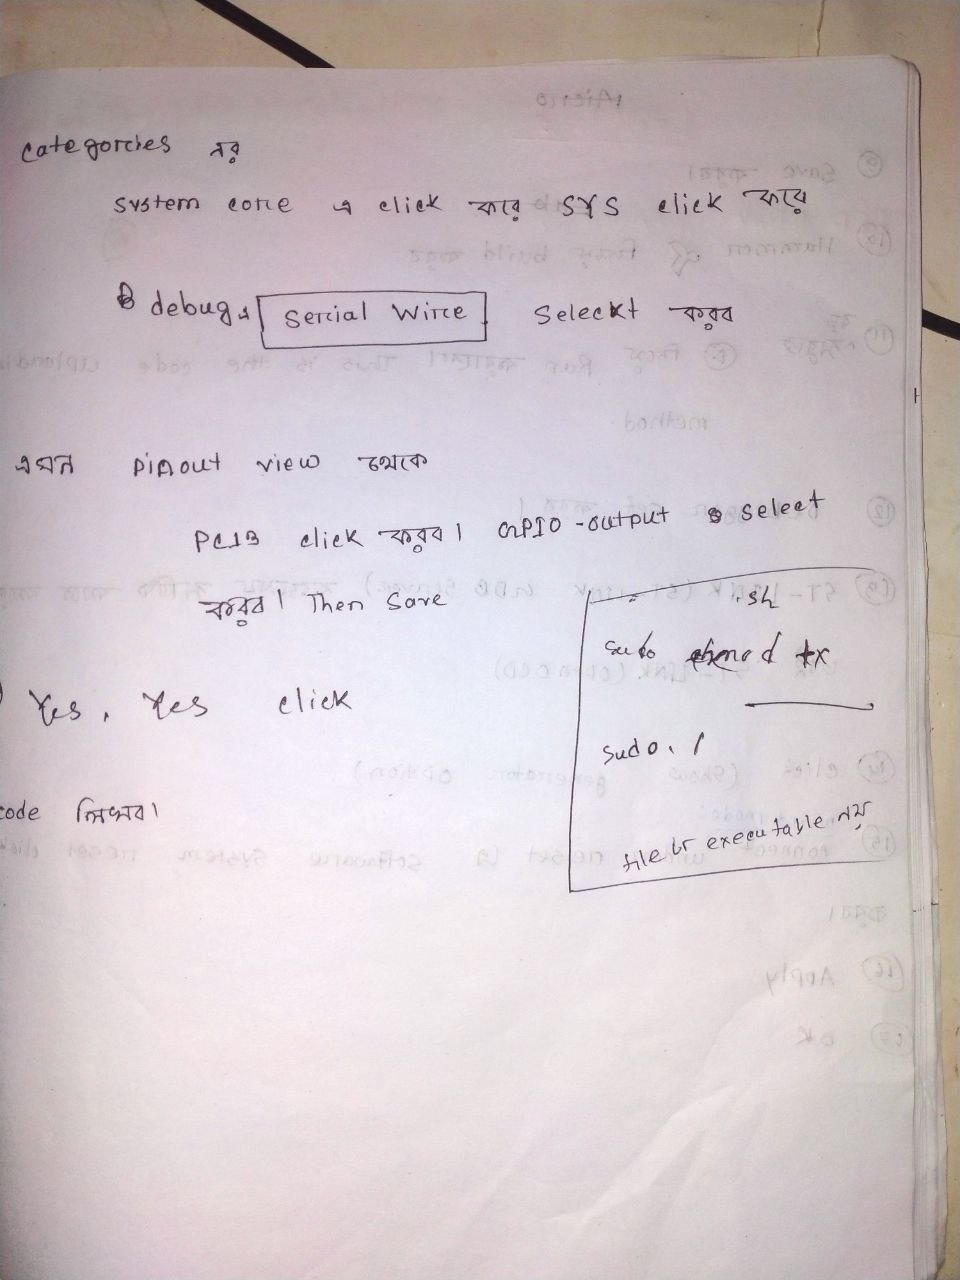 categories এর
system core এ click করে SYS click করে
debug এ Serial Wire Seleckt করব
এখন pinout view থেকে
PC13 click করব। GPIO-output select
করব। Then Save
.sh
sudo chmod +x
Yes, Yes click
sudo ./
code লিখব।
file টা executable নয়